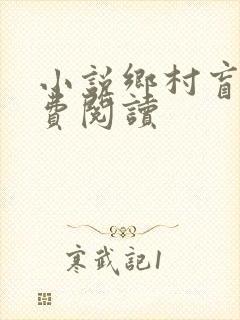 小說鄉村盲
費閱讀
寒武記1